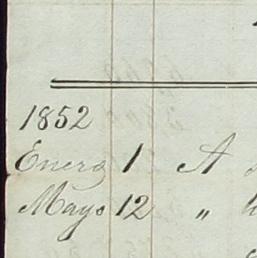 1852
Enero 1 A
Mayo 12 „